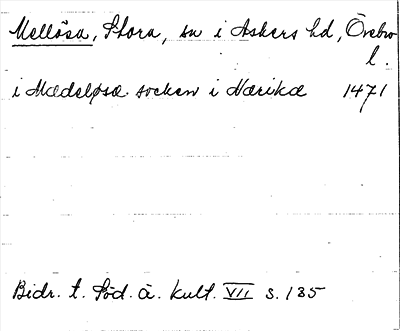 Mellösa, Stora, sn i Askers hd, Örebro
l.
i Mædeløsæ socken i Nærikæ 1471
Bidr. t. Söd. å. kult. VII s. 135